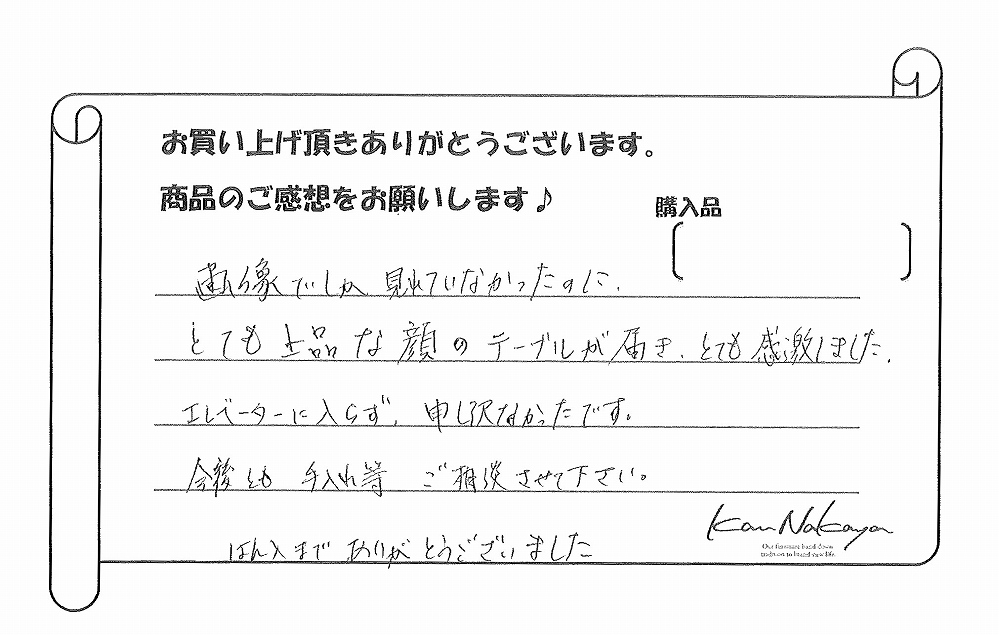 お買い上げ頂きありがとうございます。
商品のご感想をお願いします♪
購入品
画像でしか見れていなかったのに、
とても上品な顔のテーブルが届き、とても感激しました。
エレベーターに入らず、申し訳なかったです。
今後とも 手入れ等 ご相談させて下さい。
まで ありがとうございました
Kan Nakaya
Our furniture hand down
tradition to brand new life.